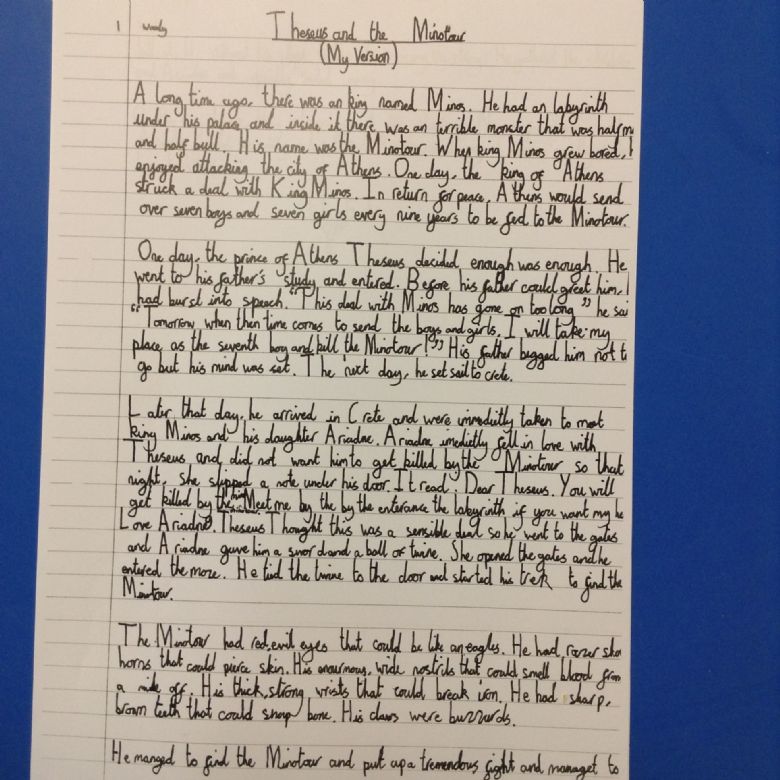 1 Woody Theseus and the Minotour
(My Version)
A long time ago, there was an king named Minos. He had an labyrinth
under his palace and inside it there was an terrible monster that was half m
and half bull. His name was the Minotour. When king Minos grew bored,
enjoyed attacking the city of Athens. One day, the king of Athens
struck a deal with King Minos. In return for peace, Athens would send
over seven boys and seven girls every nine years to be fed to the Minotour.
One day, the prince of Athens Theseus decided enough was enough. He
went to his father's study and entered. Before his father could greet him,
had burst into speech. "This deal with Minos has gone on too long" he sai
"Tomorrow when then time comes to send the boys and girls. I will take my
place as the seventh boy and kill the Minotour!" His father begged him not t
go but his mind was set. The next day, he set sail to crete.
Later that day, he arrived in Crete and were immedietly taken to meet
king Minos and his daughter Ariadne. Ariadne imedietly fell in love with
Theseus and did not want him to get killed by the Minotour so that
night, she slipped a note under his door. It read: Dear Theseus. You will
get killed by the Meet me by the by the enterance the labyrinth if you want my he
Love Ariadne. Theseus Thought this was a sensible deal so he went to the gates
and Ariadne gave him a sword and a ball of twine. She opened the gates and he
entered the maze. He tied the twine to the door and started his trek to find the
Minotour.
The Minotour had red, evil eyes that could be like an eagles. He had razer sha
horns that could pierce skin. His enourmous, wide nostrils that could smell blood from
a mile off. His thick, strong wrists that could break iron. He had sharp,
brown teeth that could snap bone. His claws were buzzards.
He manged to find the Minotour and put up a tremendous fight and managet to